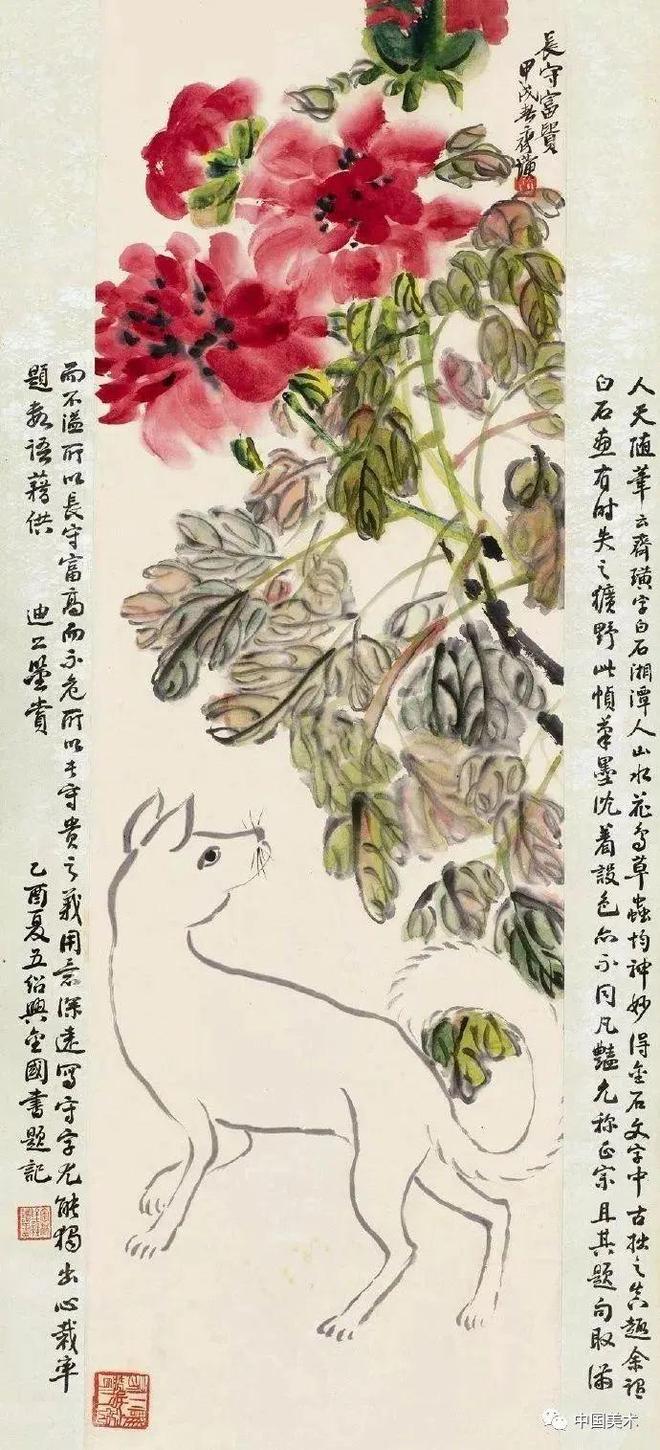 長守富貴
甲戌春齊璜
人天隨筆云齊璜字白石湘潭人山水花鳥草蟲均神妙得金石文字中古拙之真趣余謂
白石畫有時失之獷野此幀筆墨沈着設色亦不同凡豔允称正宗且其題句取滿
而不溢所以長守富高而不危所以長守貴之義用意深遠寫守字尤能獨出心裁率
題數語藉供
迪公鑒賞
乙酉夏五紹興金國書題記
中国美术